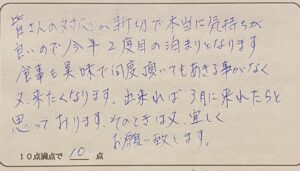 皆さんの対応が親切で本当に気持ちが
甘いので今年2度目の泊まりとなります
食事も美味で何度頂いてもあきる事がなく
又、来たくなります、出来れば3月に来れたらと
思っております。そのときは又、宜しく
お願い致します。
10点満点で 10 点